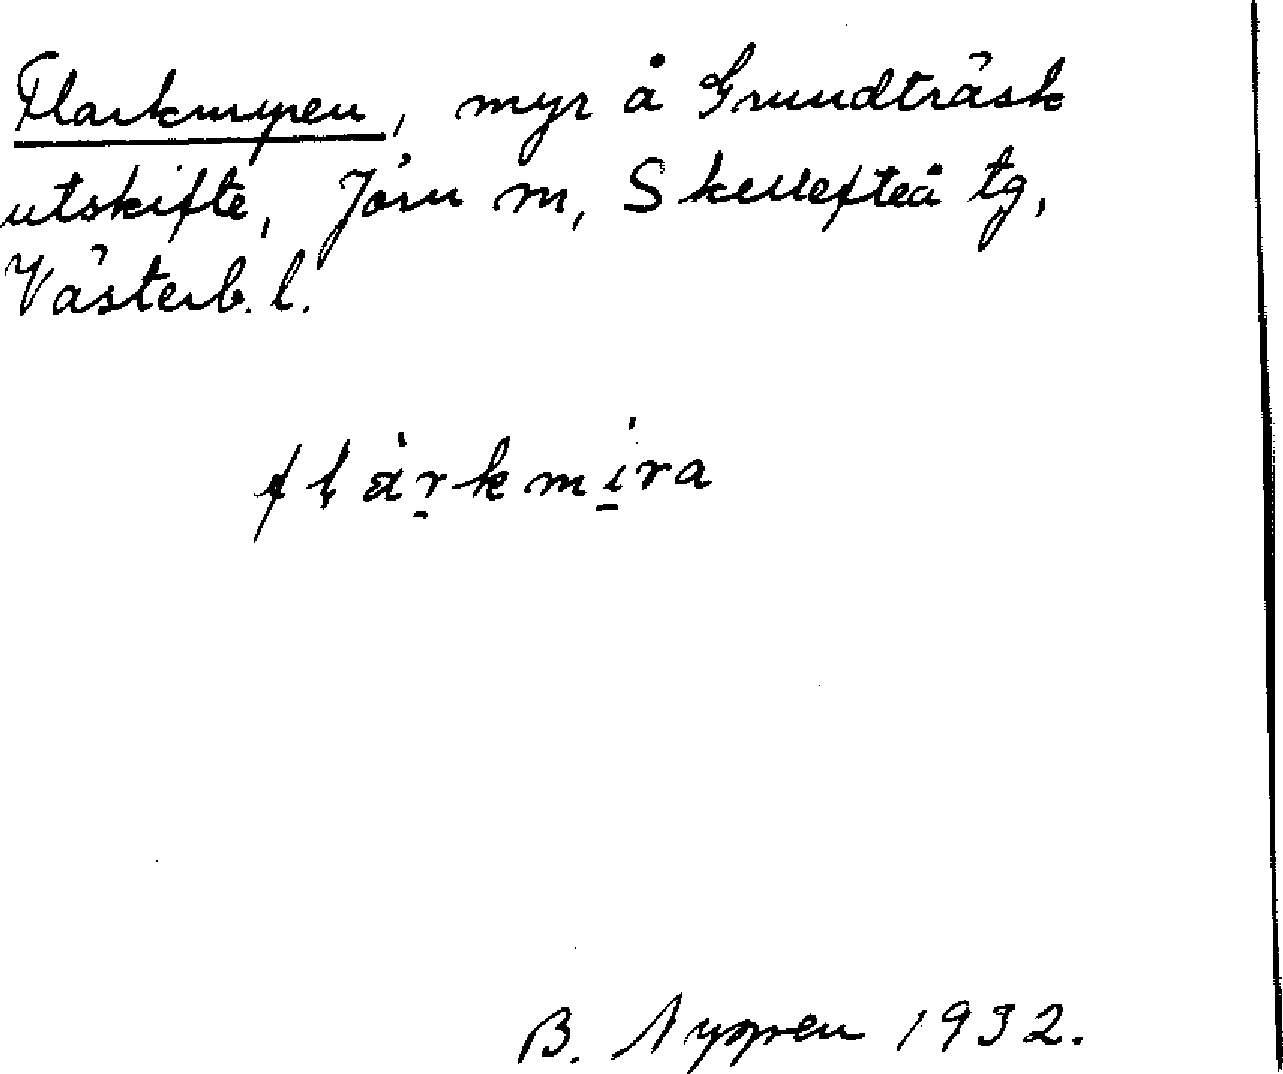 Flarkmyren, myr å Grundträsk
utskifte, Jörn m, Skellefteå tg,
Västerb. l.
flàrkmíra
B. Nygren 1932.